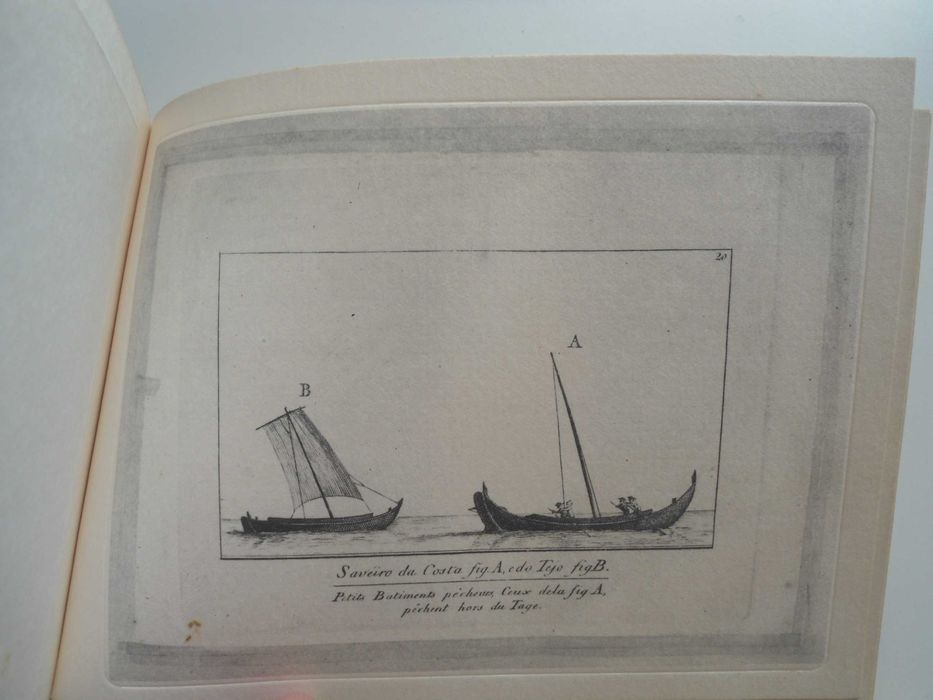 20
A
B
Saveiro da Costa fig. A, e do Tejo fig B.
Petits Batiments pêcheurs, Ceux dela fig A,
pêchent hors du Tage.